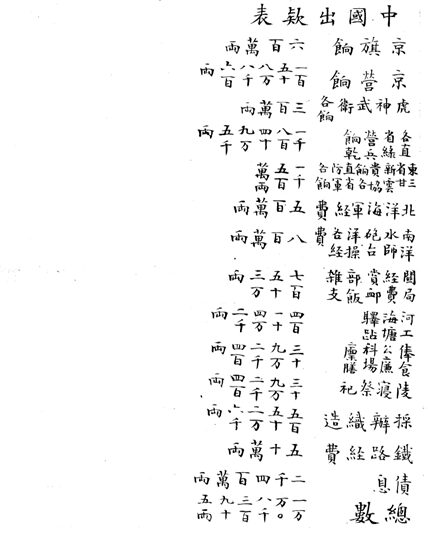 中國出欵表
京旗餉 六百萬兩
京營餉 一百五十八万八千六百兩
虎神武衛各餉 三百萬兩
各直省綠營兵餉乾 一千八百四十九万五千兩
東三省甘新雲費協餉各直省防軍各餉 一千五百萬兩
北洋海軍經費 五百萬兩
南洋水師砲台洋操各経費 八百萬兩
關局經費賞卹部飯雜支 七百五十三万兩
河工海塘驛站 四百一十四万二千兩
俸食公廉科場廩膳 三十九万二千四百兩
陵寢祭祀 三十九万二千四百兩
採辦織造 五百五十二万六千兩
鐵路経費 五十萬兩
債息 二千四百萬兩
總數 一万万〇八千三百九十五兩